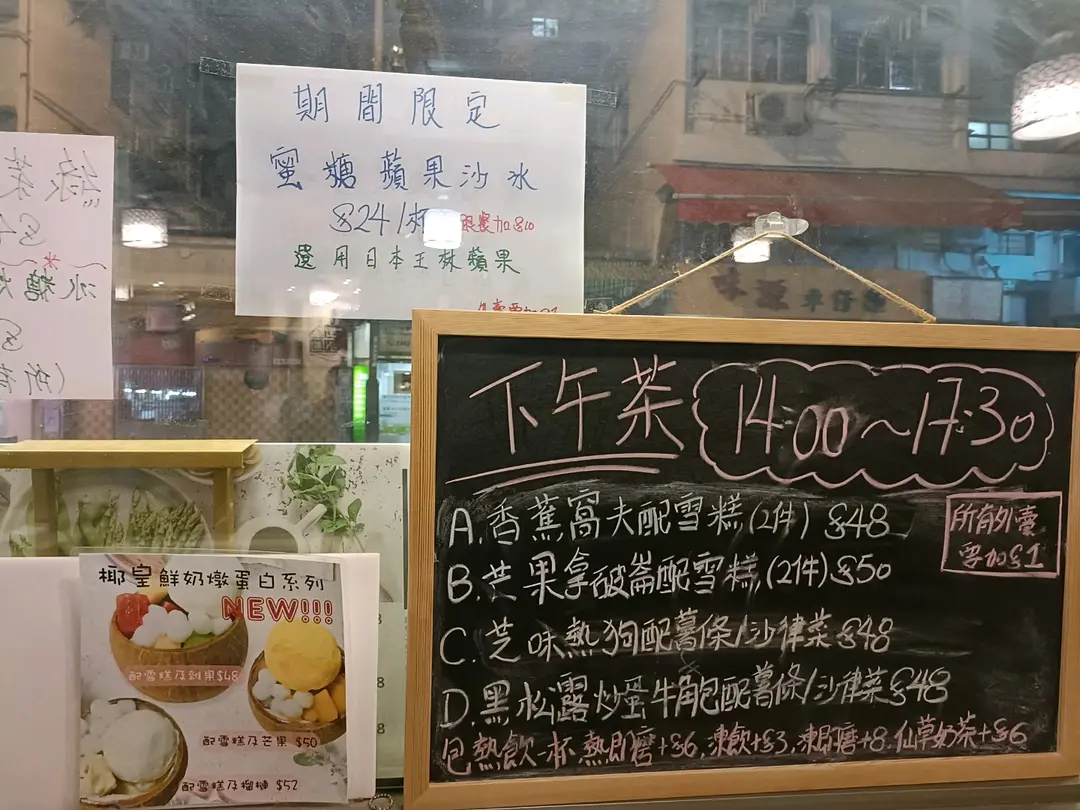 期間限定
蜜糖蘋果沙水
$24/杯 跟餐加$10
選用日本王林蘋果
綠茶
冰糖
下午茶 14:00~17:30
A.香蕉窩夫配雪糕(2件) $48
B.芒果拿破崙配雪糕,(2件).$50
C.芝味熱狗配薯條/沙律菜 $48
D.黑松露炒蛋牛角包配薯條/沙律菜$48
包熱飲一杯.熱即磨+$6,凍飲+$3,凍即磨+8.仙草奶茶+$6
所有外賣
要加$1
椰皇鮮奶燉蛋白系列
NEW!!!
配雪糕及雜果$48
配雪糕及芒果 $50
配雪糕及榴槤 $52